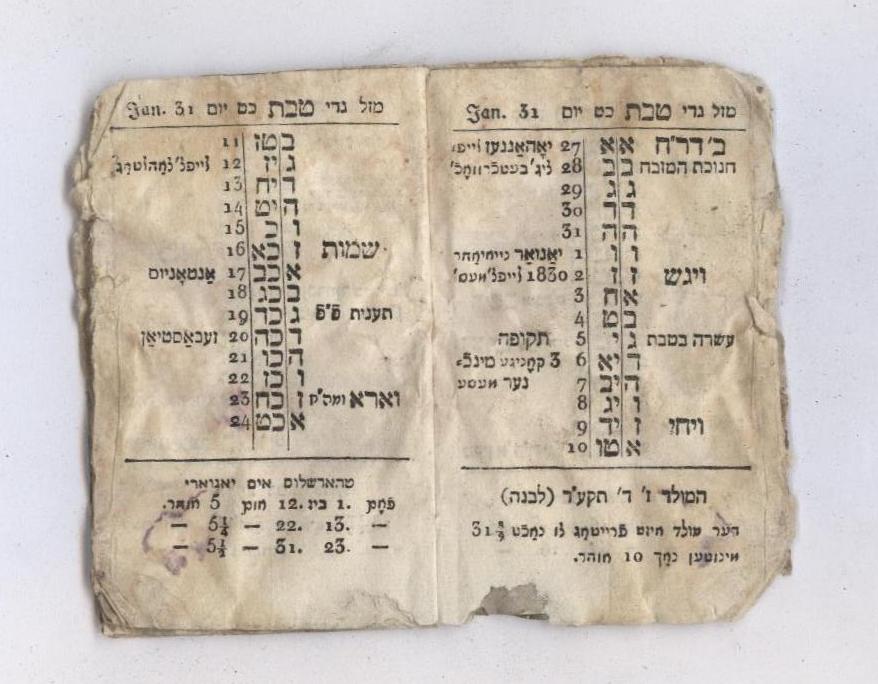 מזל גדי טבת כט יום Jan. 31
ב' דר"ח א א 27 יאהאננעז לייפ'
חנוכת המזבח ב ב 28
ג ג 29
ד ד 30
ה ה 31
ו ו 1 יאנואר נייאיאהר
ויגש ז ז 2 1830 לייפל' מעס'
א ח 3
ב ט 4
עשרה בטבת ג י 5 תקופה
ד יא 6 3 קאניגע מינכ'
ה יב 7 נער מעסע
ו יג 8
ויחי ז יד 9
א טו 10
המולד ז' ד' תקע"ד (לבנה)
דער מולד איזט פרייטאג צו נאכט 31
מינוטען נאך 10 אוהר.
מזל גדי טבת כט יום Jan. 31
ב טז 11
ג יז 12 לייפל' צאהלטאג
ד יח 13
ה יט 14
ו כ 15
שמות ז כא 16
א כב 17 אנטאניוס
ב כג 18
תענית ג כד 19
ד כה 20 זעבאסטיאן
ה כו 21
ו כז 22
וארא ומה"ח ז כח 23
א כט 24
טהארשלוס אים יאנוארי
1. ביז 12. אום 5 אוהר.
— 13. 22. — 5¼ —
— 23. 31. — 5½ —